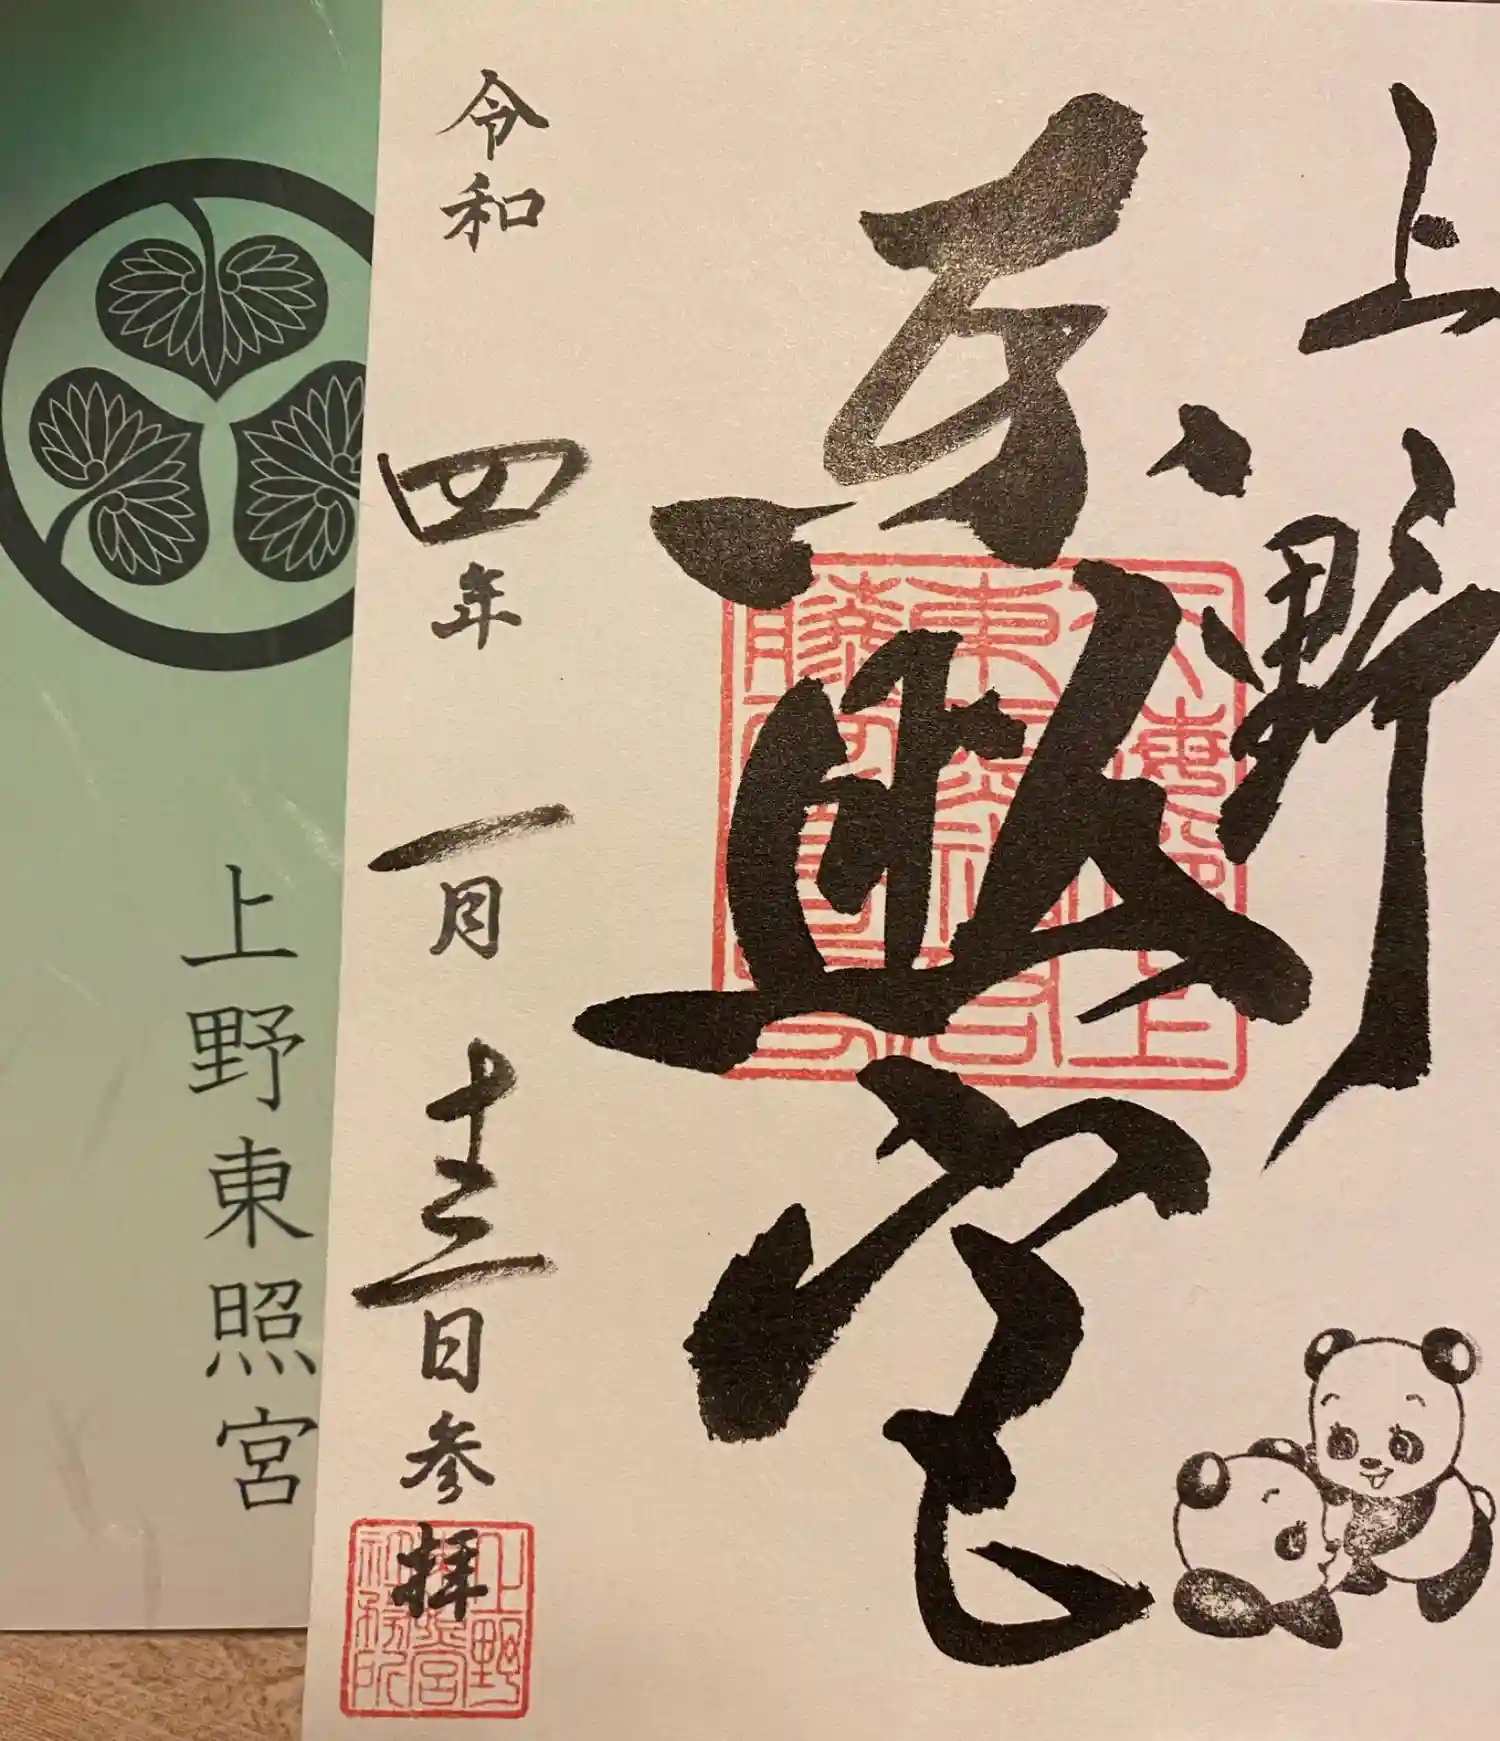 上野
東照宮
令和四年一月十三日参拝
上野東照宮
上野東照宮社務所